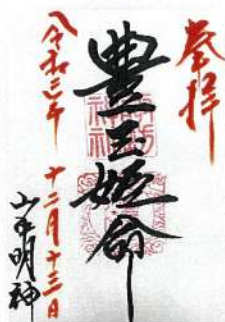 奉拝
豊玉姫命
八令和三年
十二月十三日
明神